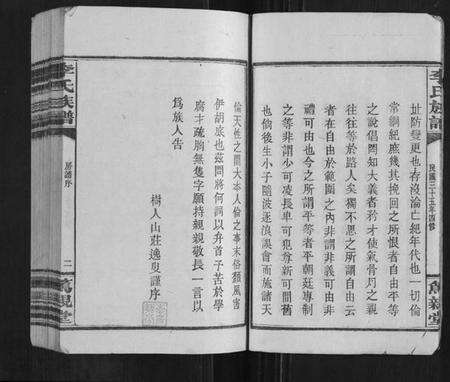 李氏族譜
民國三十五年四修
萬親堂
址防變更也存沒論亡紀年代也一切倫
常綱紀庶幾其挽回之所恨者自由平等
之說倡罔知大義者矜才使氣骨肉之親
往往等於路人矣獨不思之所謂自由云
者在自由於範圍之內非謂非義可由非
禮可由也今之所謂平等者平朝廷專制
之等非謂少可凌長卑可犯尊新可間舊
也倘後生小子隨波逐浪誤會而施諸天
倫天性之間大本人倫之事末俗頹風害
伊胡底也茲問將何詞以弁首予苦於學
腐才疏胸無隻字願持親親敬長一言以
為族人告
樹人山莊逸叟謹序
李氏族譜
房譜序
二
萬親堂